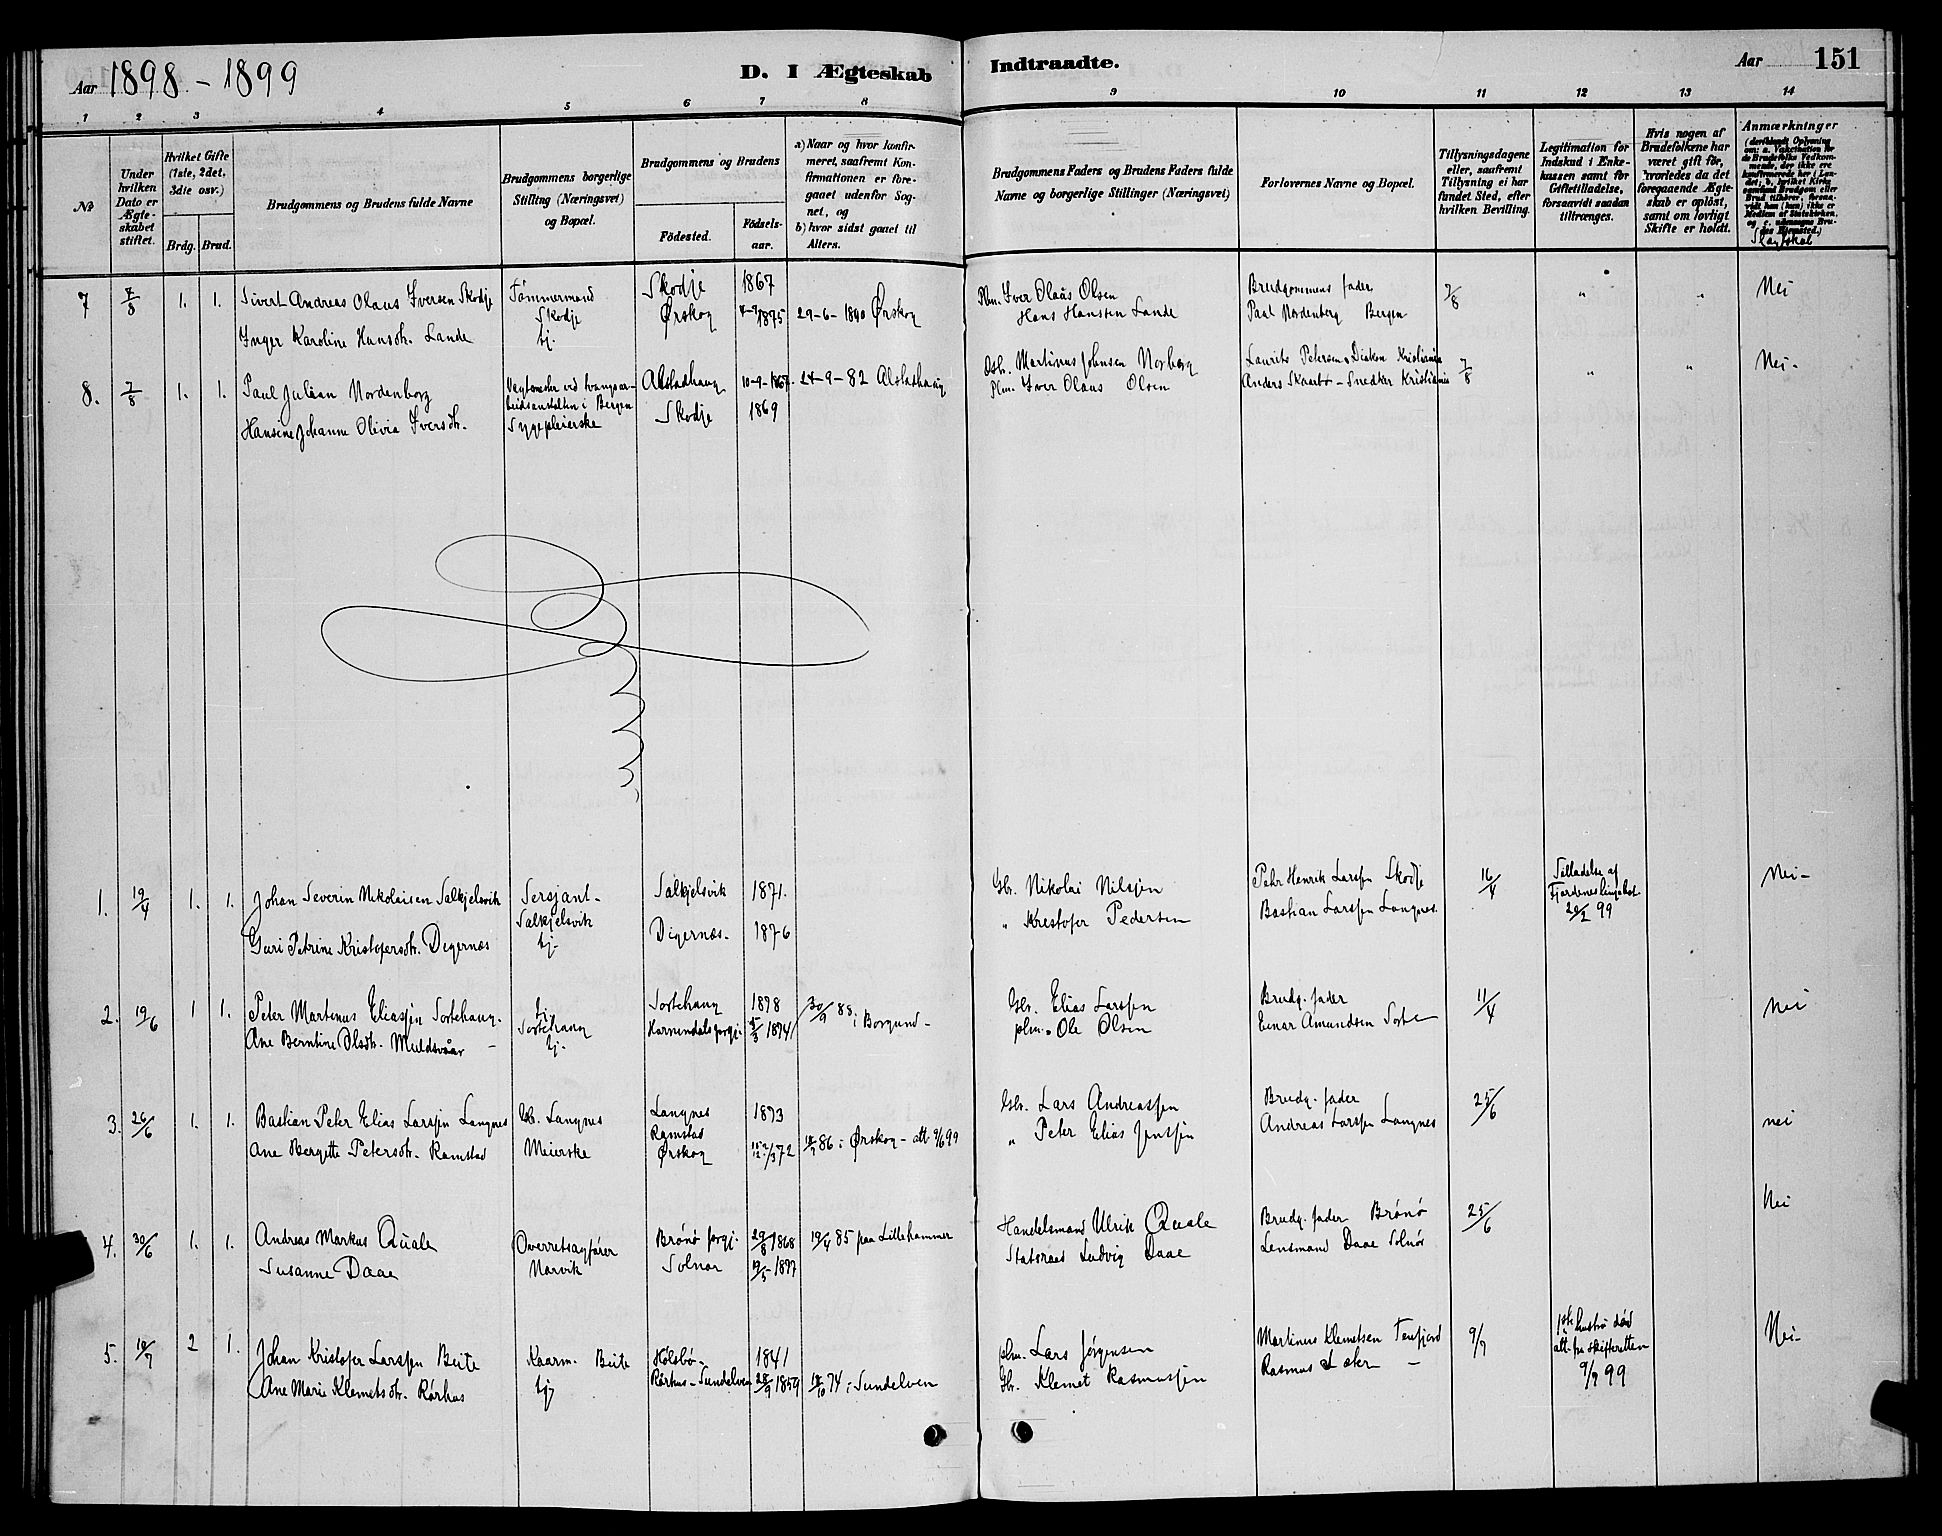 Aar 1898 - 1899
D. I Ægteskab Indtraadte.
Aar 151
1 2 3 4 5 6 7 8 9 10 11 12 13 14
№
Under hvilken Dato er Ægteskabet stiftet.
Hvilket Gifte (1ste, 2det, 3die osv.)
Brdg. Brud.
Brudgommens og Brudens fulde Navne
Brudgommens borgerlige Stilling (Næringsvei) og Bopæl.
Brudgommens og Brudens
Födested.
Födselsaar.
a) Naar og hvor konfirmeret, saafremt Konfirmationen er foregaaet udenfor Sognet, og
b) hvor sidst gaaet til Alters.
Brudgommens Faders og Brudens Faders fulde Navne og borgerlige Stillinger (Næringsvei)
Forlovernes Navne og Bopæl.
Tillysningsdagene eller, saafremt Tillysning ei har fundet Sted, efter hvilken Bevilling.
Legitimation for Indskud i Enkekassen samt for Giftetilladelse, forsaavidt saadan tiltrænges.
Hvis nogen af Brudefolkene har været gift för, hvorledes da det foregaaende Ægteskab er oplöst, samt om lovligt Skifte er holdt.
Anmærkninger
7 7/8 1. 1. Sivert Andreas Olaus Iversen Skodje Tömmermand Skodje 1867 Plm. Iver Olaus Olsen Brudgommens fader 7/8 " " Nei
Inger Karoline Hansdtr. Lande tj. Skodje Ørskog 1875 29-6-1890 Ørskog Hans Hansen Lande Paul Nordenborg Bergen
8. 7/8 1. 1. Paul Julian Nordenborg Vegtmester ved tvangsarbeidsanstalten i Bergen Alstadhaug 10-9-1867. 24-9-82 Alstadhaug Gbr. Martinus Johnsen Norberg Laurits Petersen Diakon Kristiania 7/8 " " Nei-
Hansine Johanne Olivia Iversdtr. Sygepleierske Skodje 1869 Plm. Iver Olaus Olsen Anders Skaarbø - Snedker Kristiania
1. 19/4 1. 1. Johan Severin Nikolaisen Salkjelsvik Sersjant- Salkjelsvik Salkjelsvik 1871. Gbr. Nikolai Nilssen Peter Henrik Larssen Skodje 16/4 Tilladelse af 99 Nei-
Guri Petrine Kristofersdtr. Digernæs tj- Digernæs- 1876 " Kristofer Pedersen Bastian Larssen Langnes.
2. 19/6 1 1. Peter Martinus Eliassen Sortehaug. tj. Sortehaug Sortehaug 1878 Gbr. Elias Larssen Brudg. fader 11/4 nei
Ane Berntine Olsdtr. Muldsvaar - tj- 1874 30/9 88 i Borgund- plm. Ole Olsen Einar Amundsen Sorte
3. 26/6 1. 1. Bastian Peter Elias Larssen Langnes Gb. Langnes Langnes 1873 Gbr. Lars Andreassen Brudg. fader 25/6 nei
Ane Bergitte Petersdtr. Ramstad Meierske Ramstad Ørskog 72 86 i Ørskog - att 9/6 99 " Peter Elias Jenssen Andreas Larssen Langnes
4. 30/6 1. 1. Andreas Markus Quale Overretsagfører Narvik Brönö prgj. 29/8 1868 19/4 85 paa Lillehammer Handelsmand Ulrik Quale Brudg. fader Brönö 25/6 Nei
Susanne Daae Solnør 1877 Statsraad Ludvig Daae Lensmand Daae Solnör
5. 10/7 2 1. Johan Kristofer Larssen Beite Kaarm. Beite 1841 plm. Lars Jörgensen Martinus Klemetsen Tenfjord 9/7 1ste hustru död att. fra skifteretten 9/7 99 Nei-
Ane Marie Klemetsdtr. Rörhus tj. Rörhus - Sundelven 1859 74 i Sundelven Gbr. Klemet Rasmussen Rasmus